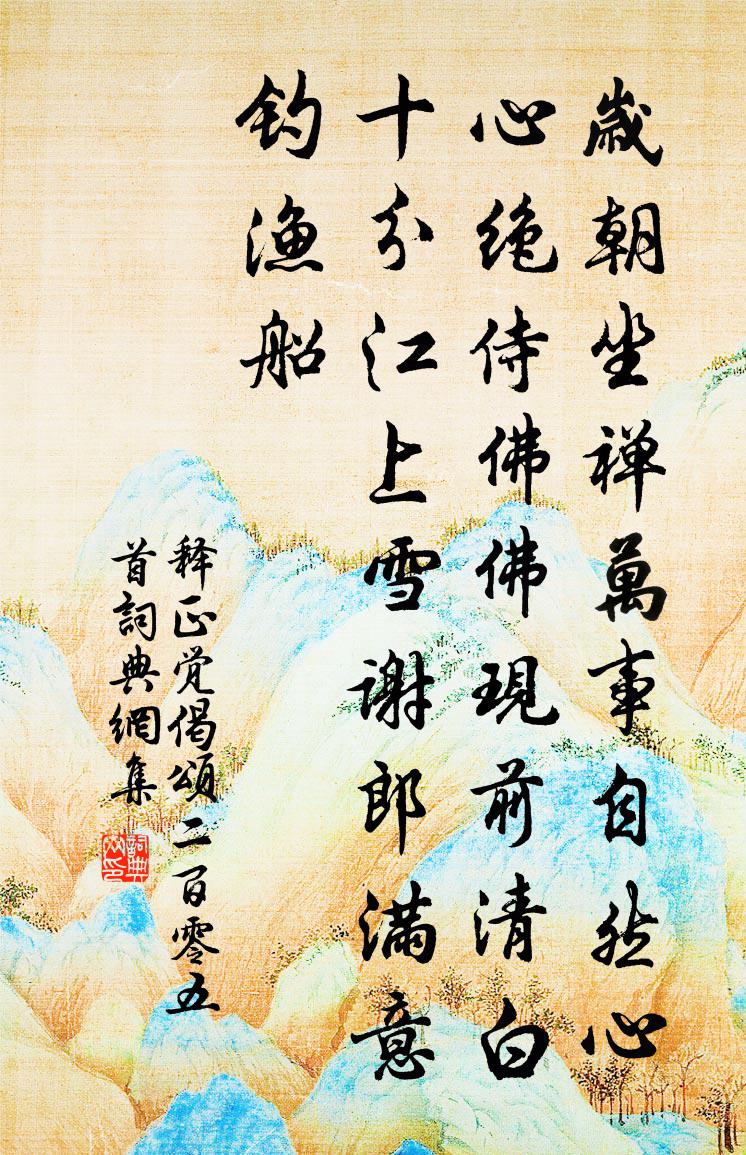 歲朝坐禪萬事自然心
心絕侍佛佛現前清白
十分江上雪謝郎滿意
釣漁船
釋正覺偈頌二百零五
首詞典網集
詞典
网印